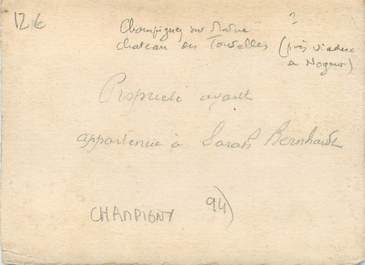 12€
?
Champigny sur Marne
chateau des Tourelles (près viaduc
à Nogent)
Propriété ayant
appartenue à Sarah Bernhardt
CHAMPIGNY 94)